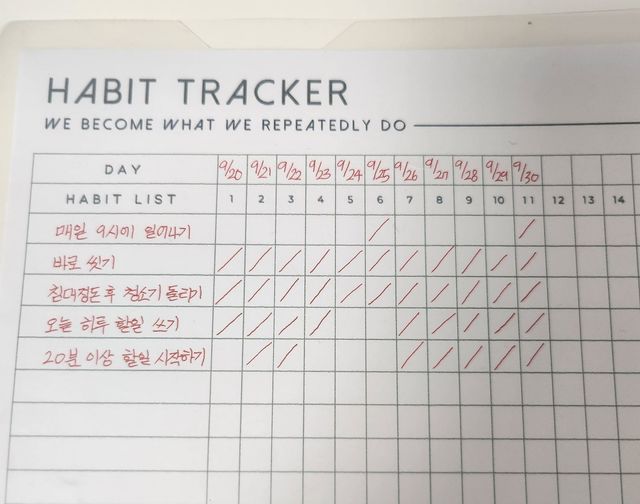 HABIT TRACKER
WE BECOME WHAT WE REPEATEDLY DO
DAY 9/20 9/21 9/22 9/23 9/24 9/25 9/26 9/27 9/28 9/29 9/30
HABIT LIST 1 2 3 4 5 6 7 8 9 10 11 12 13 14
매일 9시에 일어나기
바로 씻기
침대정돈 후 청소기 돌리기
오늘 하루 할일 쓰기
20분 이상 할일 시작하기